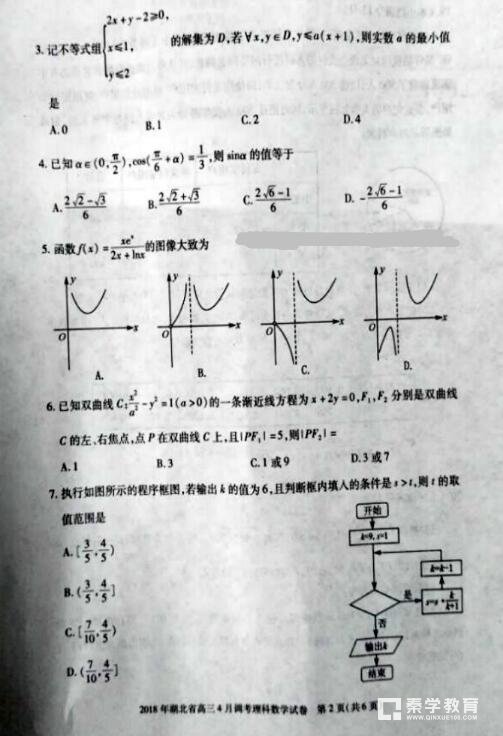 2x+y-2≥0,
3. 记不等式组{x≤1, 的解集为D,若∀x,y∈D,y≤a(x+1),则实数a的最小值
y≤2
是
A.0 B.1 C.2 D.4
4. 已知α∈(0,π/2),cos(π/6+α)=1/3,则sinα的值等于
A. (2√2-√3)/6 B. (2√2+√3)/6 C. (2√6-1)/6 D. -(2√6-1)/6
5. 函数f(x)=xeˣ/(2x+lnx)的图像大致为
y y y y
O x O x O x O x
A. B. C. D.
6. 已知双曲线C:x²/a²-y²=1(a>0)的一条渐近线方程为x+2y=0,F₁,F₂分别是双曲线
C的左、右焦点,点P在双曲线C上,且|PF₁|=5,则|PF₂|=
A.1 B.3 C.1或9 D.3或7
7. 执行如图所示的程序框图,若输出k的值为6,且判断框内填入的条件是s>t,则t的取
值范围是
A.[3/5,4/5)
B.(3/5,4/5]
C.[7/10,4/5)
D.(7/10,4/5]
开始
k=9,s=1
k=k-1
是
s=s·k/(k+1)
否
输出k
结束
2018年湖北省高三4月调考理科数学试卷 第2页(共6页
秦学教育
www.QINXUE100.com